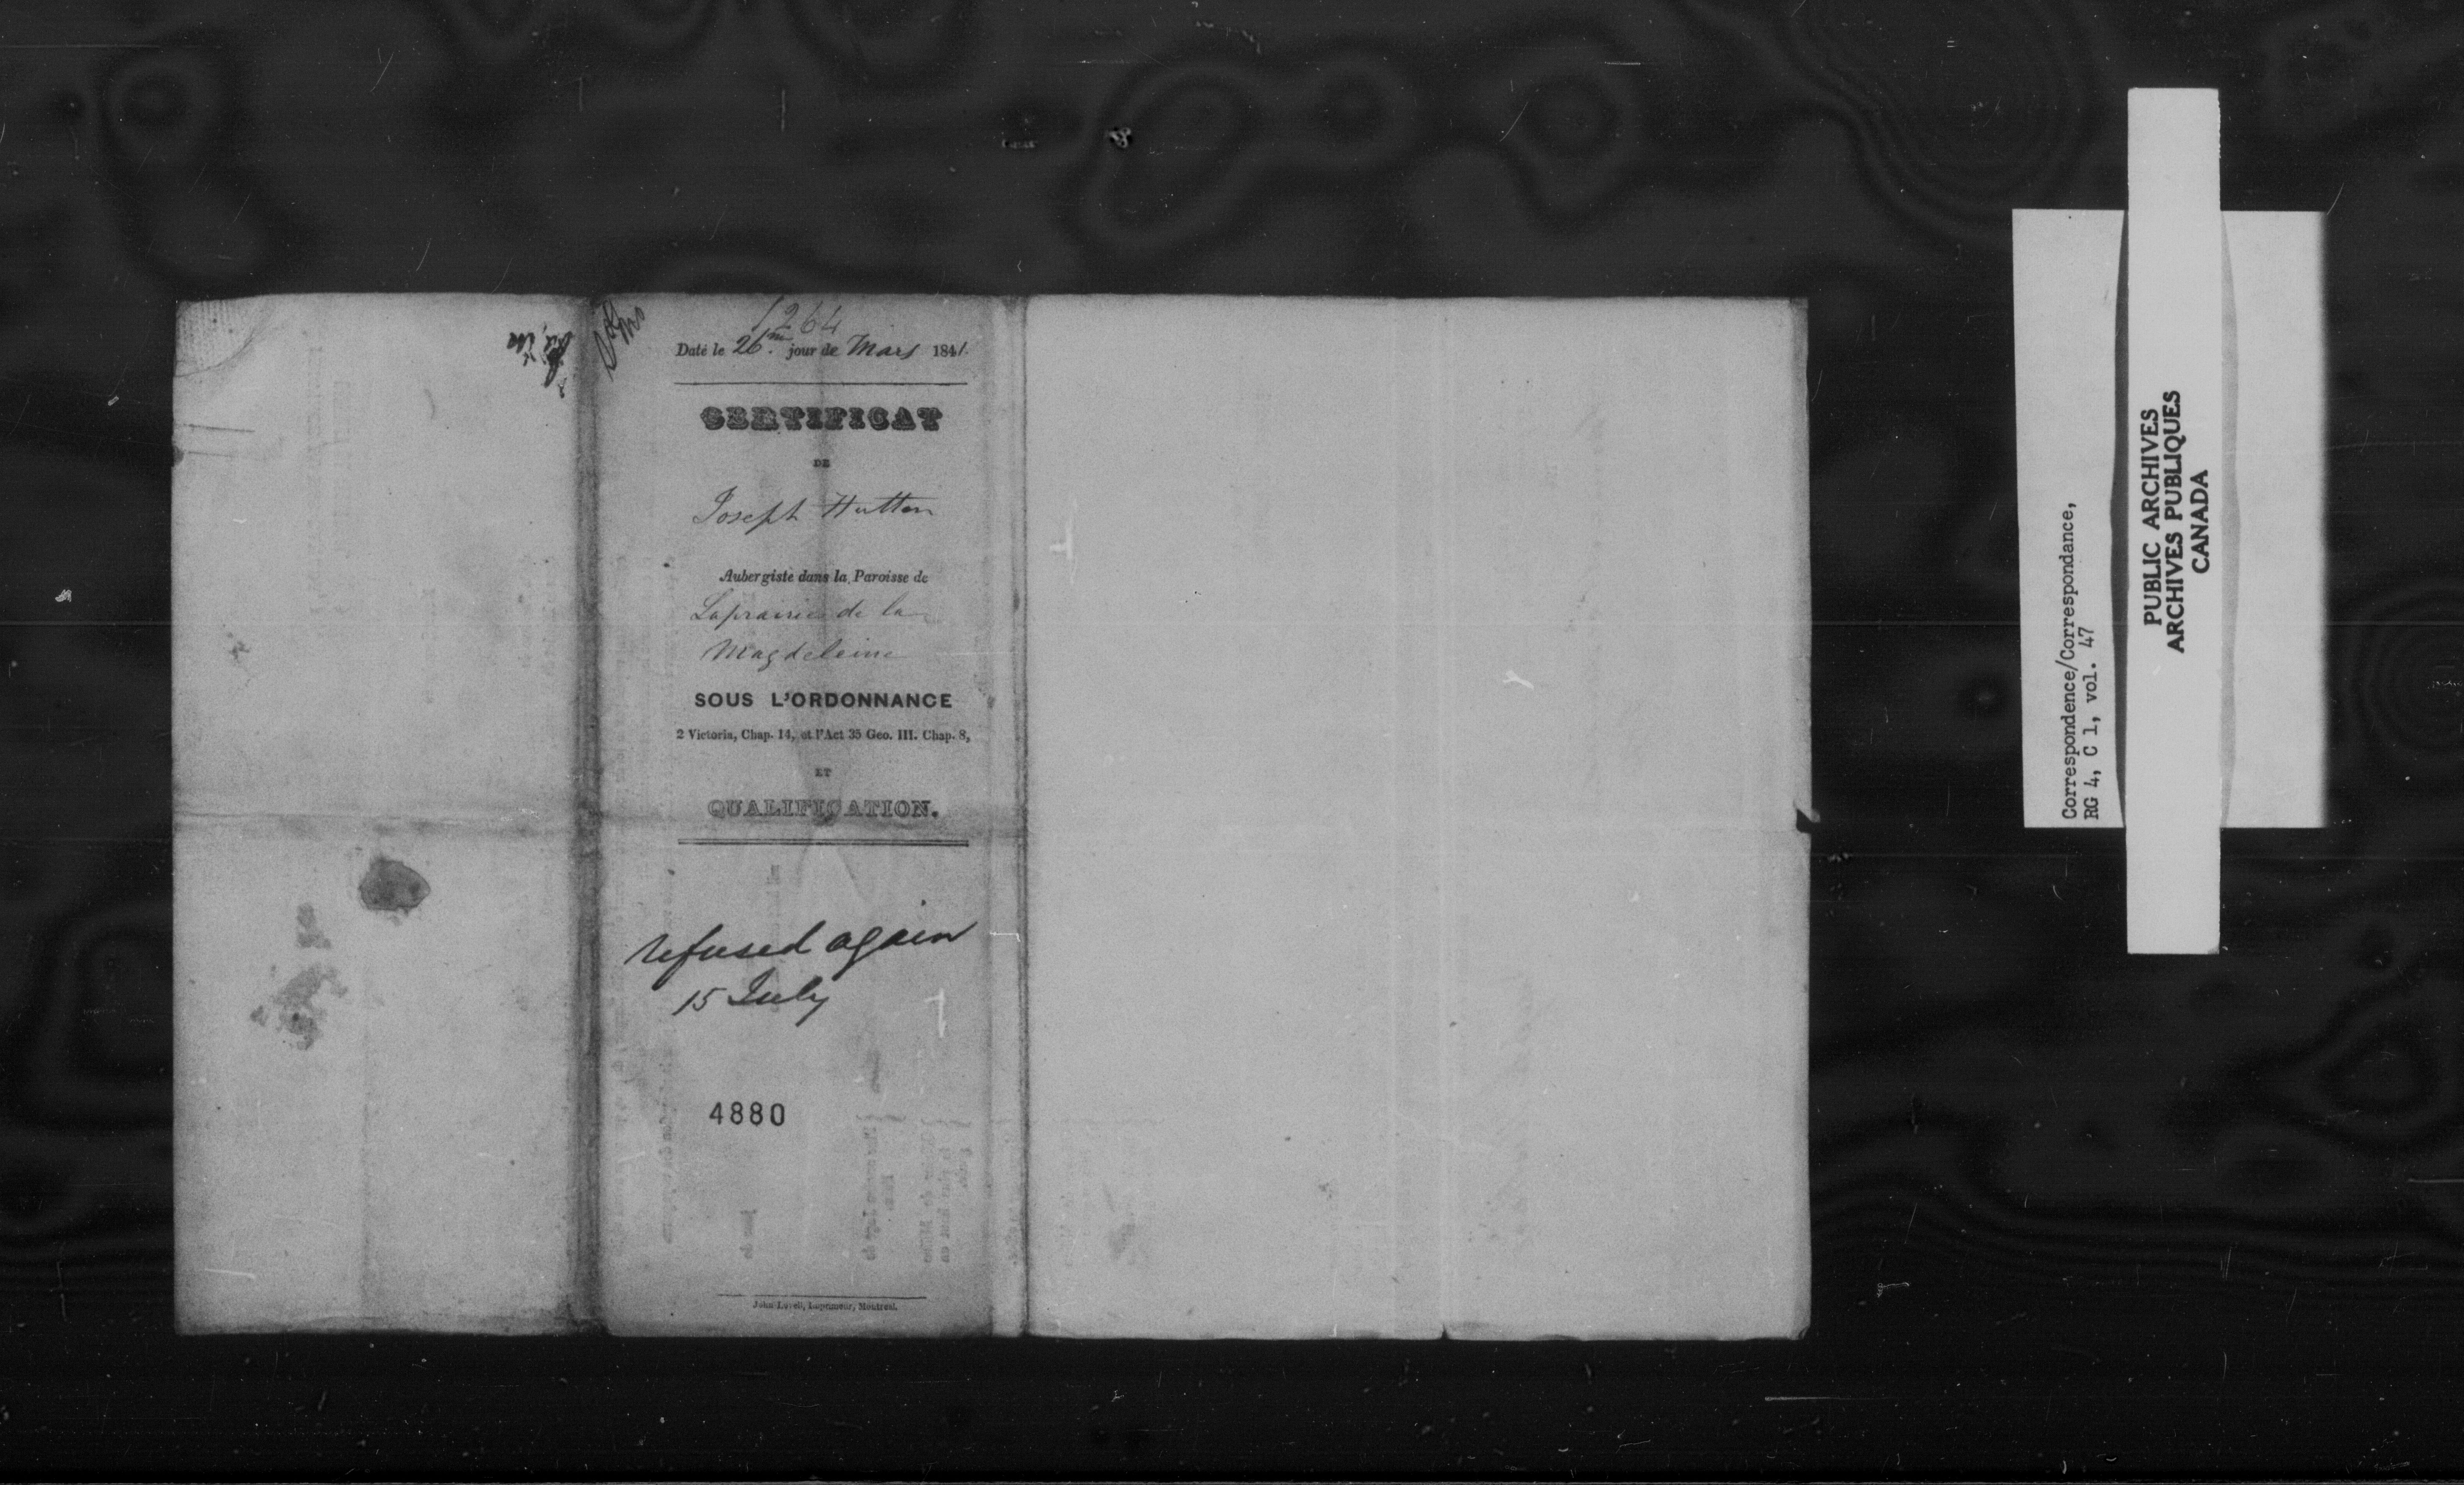 1264
Daté le 26me. jour de Mars 1841.
CERTIFICAT
DE
Joseph Hutton
Aubergiste dans la Paroisse de
Laprairie de la
Magdeleine
SOUS L'ORDONNANCE
2 Victoria, Chap. 14, et l'Act 35 Geo. III. Chap. 8,
ET
QUALIFICATION.
refused again
15 July
4880
John Lovell, Imprimeur, Montréal.
Correspondence/Correspondance,
RG 4, C 1, vol. 47
PUBLIC ARCHIVES
ARCHIVES PUBLIQUES
CANADA